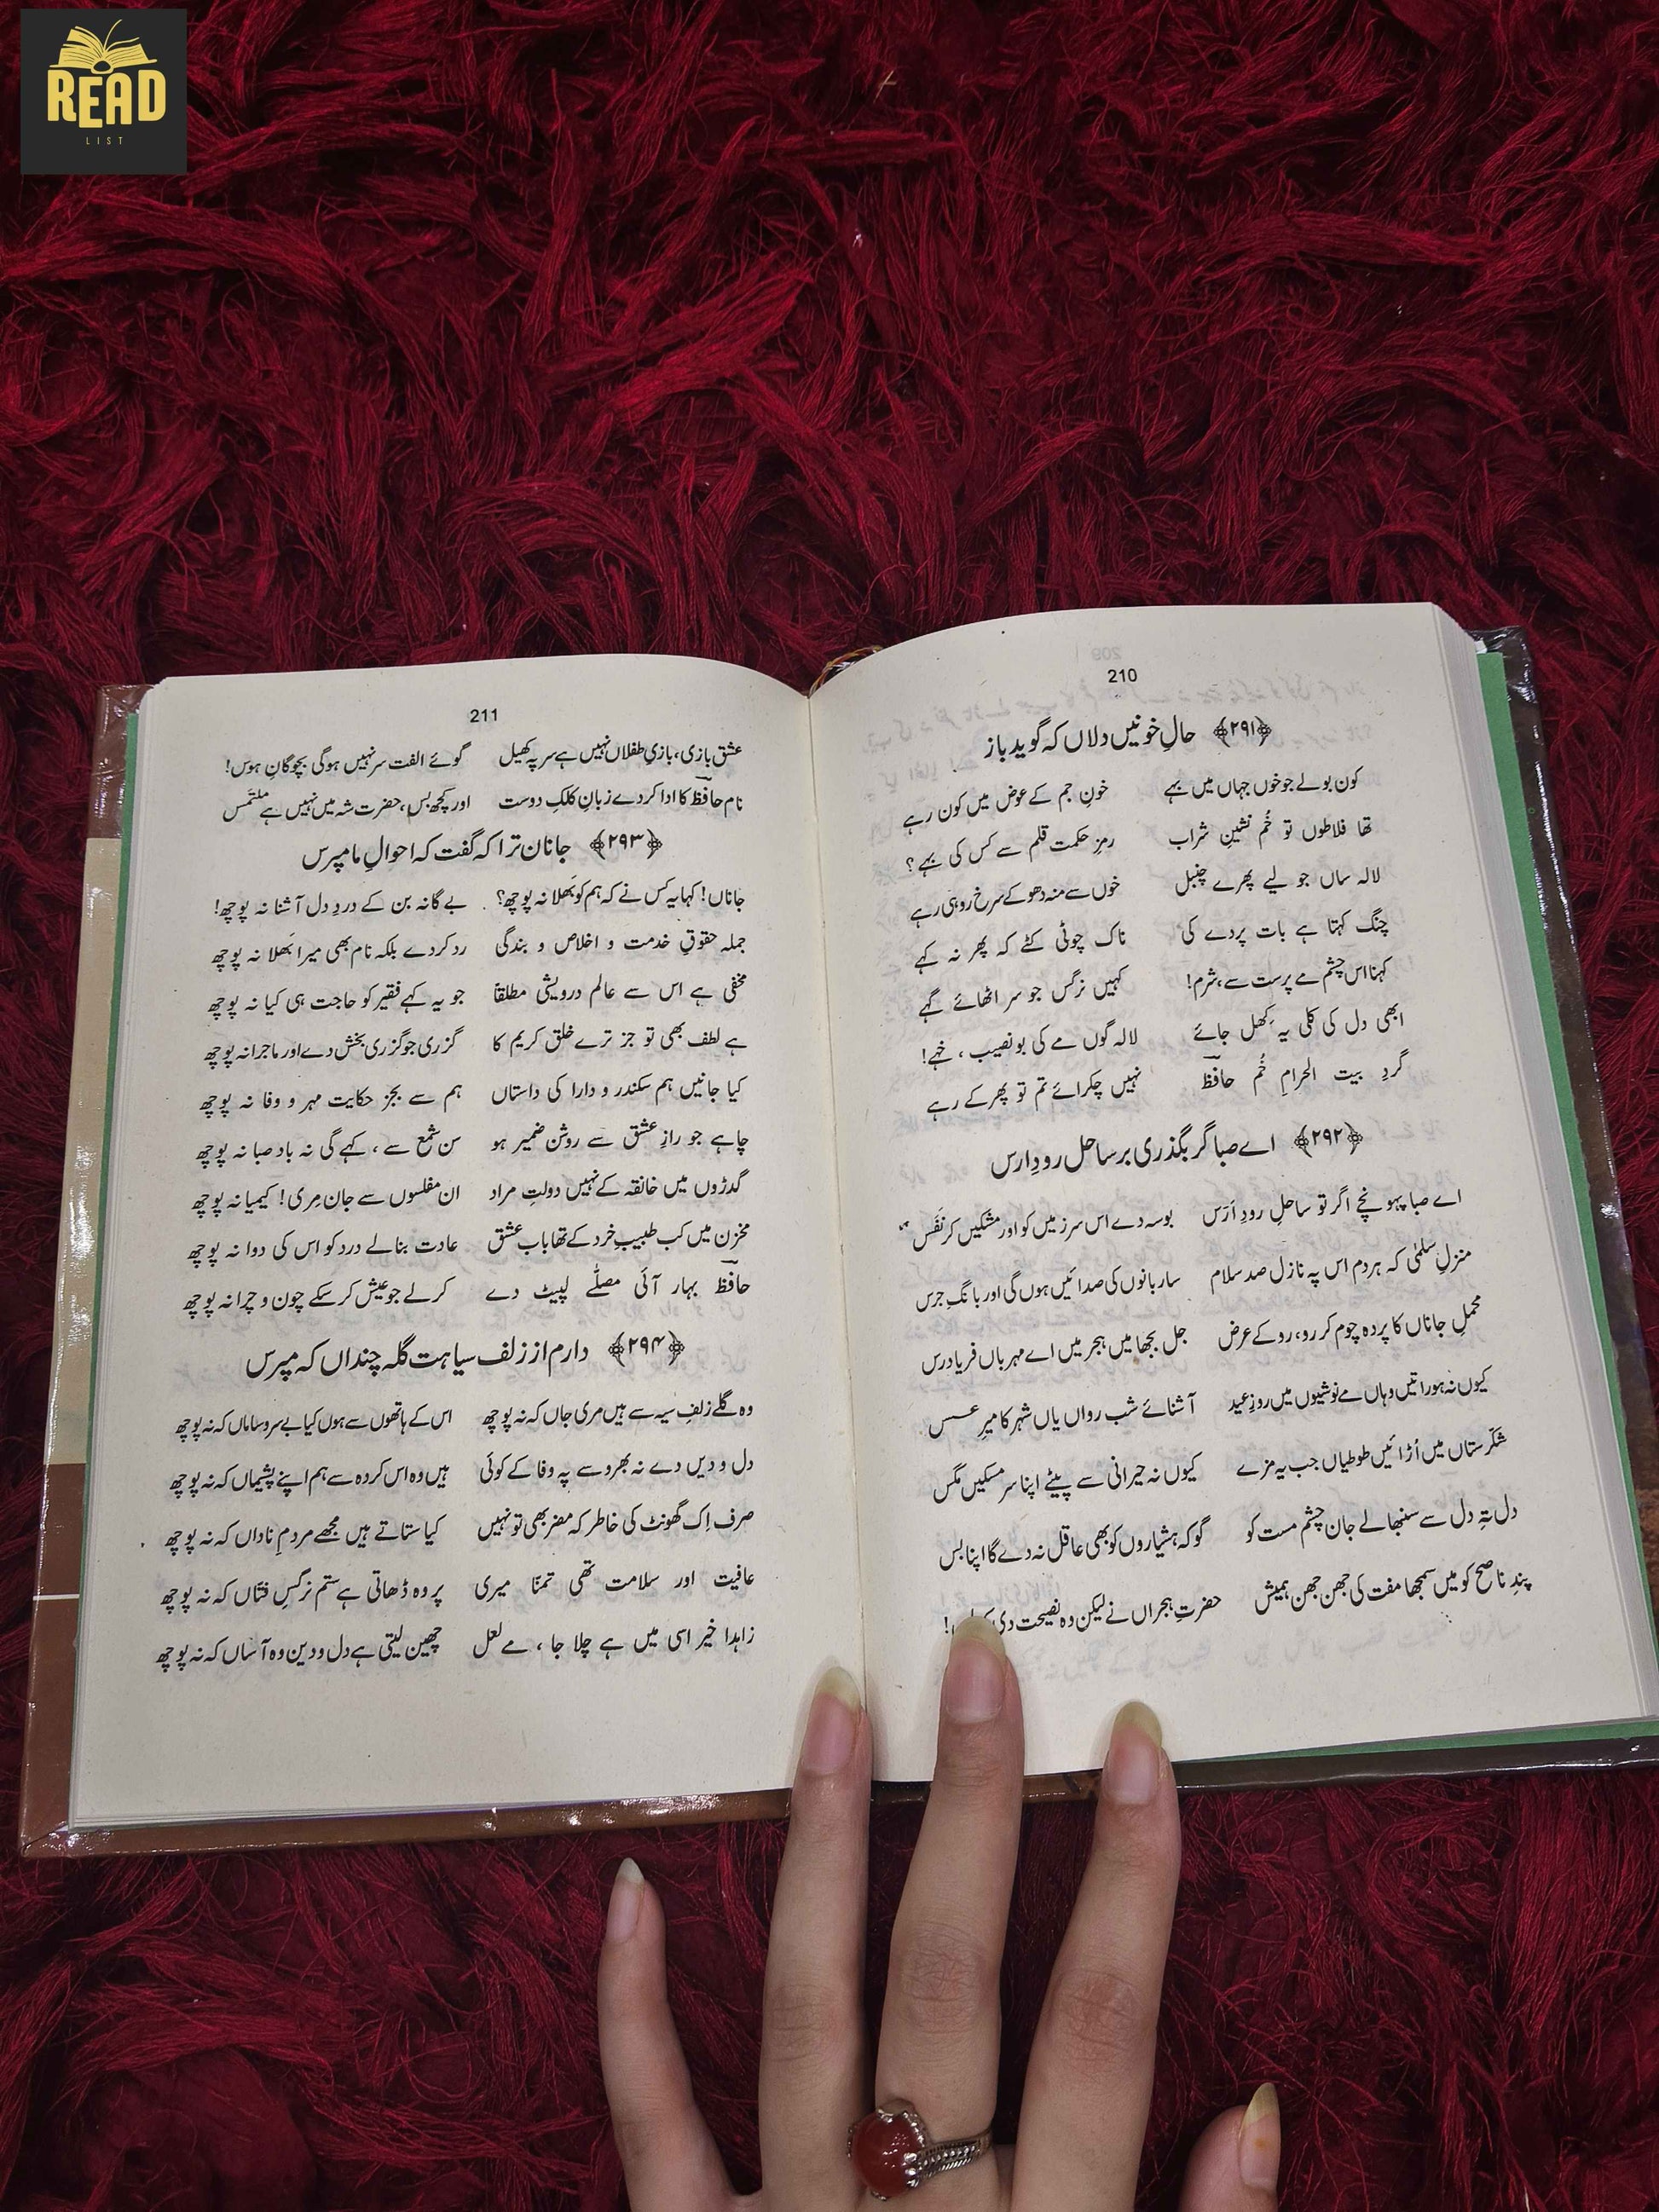 READ
LIST
210
﴿۲۹۱﴾ حالِ خونیں دلاں کہ گوید باز
کون بولے جو خوں جہاں میں بہے خونِ جم کے عوض میں کون رہے
تھا فلاطوں تو خُم نشینِ شراب رمزِ حکمت قلم سے کس کی بہے؟
لالہ ساں جو لیے پھرے چنبل خوں سے منہ دھو کے سرخ رو ہی رہے
چنگ کہتا ہے بات پردے کی ناک چوٹی کٹے کہ پھر نہ کہے
کہنا اس چشم مے پرست سے، شرم! کہیں نرگس جو سر اٹھائے گہے
ابھی دل کی کلی یہ کھل جائے لالہ گوں مے کی بو نصیب، خہے!
گردِ بیت الحرامِ خُم حافظؔ نہیں چکرائے تم تو پھر کے رہے
﴿۲۹۲﴾ اے صبا گر بگذری بر ساحل رودِ ارس
اے صبا پہونچے اگر تو ساحلِ رودِ اَرَس بوسہ دے اس سرزمیں کو اور مشکیں کر نَفَس
منزلِ سلمٰی کہ ہر دم اس پہ نازل صد سلام ساربانوں کی صدائیں ہوں گی اور بانگِ جرس
محملِ جاناں کا پردہ چوم کر رو، رو کے عرض جل بجھا میں ہجر میں اے مہرباں فریاد رس
کیوں نہ ہو راتیں وہاں مے نوشیوں میں روزِ عید آشنائے شب رواں یاں شہر کا میرِ عسس
شکّرستاں میں اُڑائیں طوطیاں جب یہ مزے کیوں نہ حیرانی سے پیٹے اپنا سر مسکیں مگس
دل بتہِ دل سے سنبھالے جان چشم مست کو گو کہ ہشیاروں کو بھی عاقل نہ دے گا اپنا بس
پندِ ناصح کو میں سمجھا مفت کی جھن جھن ہمیش حضرتِ ہجراں نے لیکن وہ نصیحت دی
211
عشق بازی، بازیِ طفلاں نہیں ہے سر پہ کھیل گوئے الفت سر نہیں ہوگی بچوگانِ ہوس!
نام حافظؔ کا ادا کر دے زبانِ کلکِ دوست اور کچھ بس، حضرت شہ میں نہیں ہے ملتمس
﴿۲۹۳﴾ جانان ترا کہ گفت کہ احوالِ ما مپرس
جاناں! کہا یہ کس نے کہ ہم کو بَھلا نہ پوچھ؟ بے گانہ بن کے دردِ دل آشنا نہ پوچھ!
جملہ حقوقِ خدمت و اخلاص و بندگی رد کر دے بلکہ نام بھی میرا بَھلا نہ پوچھ
مخفی ہے اس سے عالم درویشی مطلقاً جو یہ کہے فقیر کو حاجت ہی کیا نہ پوچھ
ہے لطف بھی تو جز ترے خلق کریم کا گزری جو گزری بخش دے اور ماجرا نہ پوچھ
کیا جانیں ہم سکندر و دارا کی داستاں ہم سے بجز حکایت مہر و وفا نہ پوچھ
چاہے جو رازِ عشق سے روشن ضمیر ہو سن شمع سے، کہے گی نہ باد صبا نہ پوچھ
گدڑوں میں خانقہ کے نہیں دولتِ مراد ان مفلسوں سے جان مِری! کیمیا نہ پوچھ
مخزن میں کب طبیبِ خرد کے تھا باب عشق عادت بنا لے درد کو اس کی دوا نہ پوچھ
حافظؔ بہار آئی مصلّٰے لپیٹ دے کر لے جو عیش کر سکے چون و چرا نہ پوچھ
﴿۲۹۴﴾ دارم از زلف سیاہت گلہ چنداں کہ مپرس
وہ گلے زلفِ سیہ سے ہیں مری جاں کہ نہ پوچھ اس کے ہاتھوں سے ہوں کیا بے سر و ساماں کہ نہ پوچھ
دل و دیں دے نہ بھروسے پہ وفا کے کوئی ہیں وہ اس کردہ سے ہم اپنے پشیماں کہ نہ پوچھ
صرف اِک گھونٹ کی خاطر کہ مضر بھی تو نہیں کیا ستاتے ہیں مجھے مردمِ ناداں کہ نہ پوچھ
عافیت اور سلامت تھی تمنّا میری پر وہ ڈھاتی ہے ستم نرگسِ فتّاں کہ نہ پوچھ
زاہدا خیر اسی میں ہے چلا جا، مے لعل چھین لیتی ہے دل و دین وہ آساں کہ نہ پوچھ